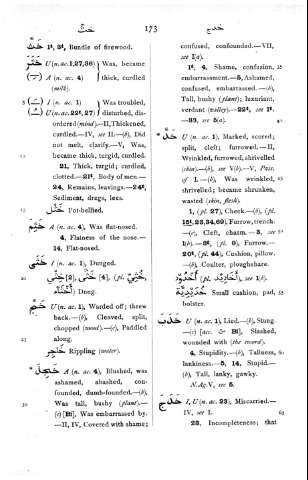 خثّ
173
خدج
خُثّ 1ª, 3ª, Bundle of firewood.
خَثَرَ U (n. ac. 1, 27, 36) Was, became
A (n. ac. 4) thick, curdled
(milk).
I (n. ac. 1) Was troubled,
U (n. ac. 22ª, 27) disturbed, dis-
ordered (mind).—II, Thickened,
curdled.—IV, see II.—(b), Did
not melt, clarify.—V, Was,
became thick, turgid, curdled.
21, Thick, turgid; curdled,
clotted.—21ª, Body of men.—
24, Remains, leavings.—24ª,
Sediment, dregs, lees.
Pot-bellied.
خَثِمَ A (n. ac. 4), Was flat-nosed.
4, Flatness of the nose.—
14, Flat-nosed.
خَثَى I (n. ac. 1), Dunged.
خِثْي [2], خَثًى [4], (pl.
أَخْثَاء) Dung.
U (n. ac. 1), Warded off; threw
back.—(b), Cleaved, split,
chopped (wood).—(c), Paddled
along.
Rippling (water).
خَجِلَ A (n. ac. 4), Blushed, was
ashamed, abashed, con-
founded, dumb-founded.—(b),
Was tall, bushy (plant).—
(c) [Bi], Was embarrassed by.
—II, IV, Covered with shame;
confused, confounded.—VII,
see I(a).
1ª, 4, Shame, confusion,
embarrassment.—5, Ashamed,
confused, embarrassed.—(b),
Tall, bushy (plant); luxuriant,
verdant (valley).—22ª, see 1ª.
—33, see 5(a).
خَدَّ U (n. ac. 1), Marked, scored;
split, cleft; furrowed.—II,
Wrinkled, furrowed, shrivelled
(skin).—(b), see V(b).—V, Pass.
of I.—(b), Was wrinkled,
shrivelled; became shrunken,
wasted (skin, flesh).
1, (pl. 27), Cheek.—(b), (pl.
15ª, 23, 34, 69), Furrow, trench.
—(c), Cleft, chasm.—3, see
1(b).—3ª, (pl. 9), Furrow.—
20ª, (pl. 44), Cushion, pillow.
—(b), Coulter, ploughshare.
أُخْدُود (pl. أَخَادِيد), see 1(b).
Small cushion, pad,
bolster.
خَدَبَ U (n. ac. 1), Lied.—(b), Stung.
—(c) [acc. & Bi], Slashed,
wounded with (the sword).
4, Stupidity.—(b), Tallness,
lankiness.—5, 14, Stupid.—
(b), Tall, lanky, gawky.
N.Ag.V, see 5.
خَدَجَ I, U (n. ac. 23), Miscarried.—
IV, see I.
23, Incompleteness; that